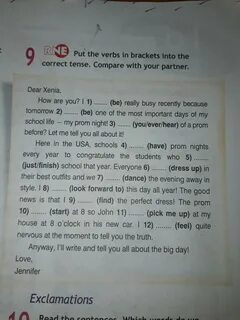 9 RNE Put the verbs in brackets into the
correct tense. Compare with your partner.
Dear Xenia,
How are you? I 1) ........ (be) really busy recently because
tomorrow 2) ........ (be) one of the most important days of my
school life – my prom night! 3) ........ (you/ever/hear) of a prom
before? Let me tell you all about it!
Here in the USA, schools 4) ........ (have) prom nights
every year to congratulate the students who 5) ........
(just/finish) school that year. Everyone 6) ........ (dress up) in
their best outfits and we 7) ........ (dance) the evening away in
style. I 8) ........ (look forward to) this day all year! The good
news is that I 9) ........ (find) the perfect dress! The prom
10) ........ (start) at 8 so John 11) ........ (pick me up) at my
house at 8 o'clock in his new car. I 12) ........ (feel) quite
nervous at the moment to tell you the truth.
Anyway, I'll write and tell you all about the big day!
Love,
Jennifer
Exclamations
10 Read the sentences. Which words do we